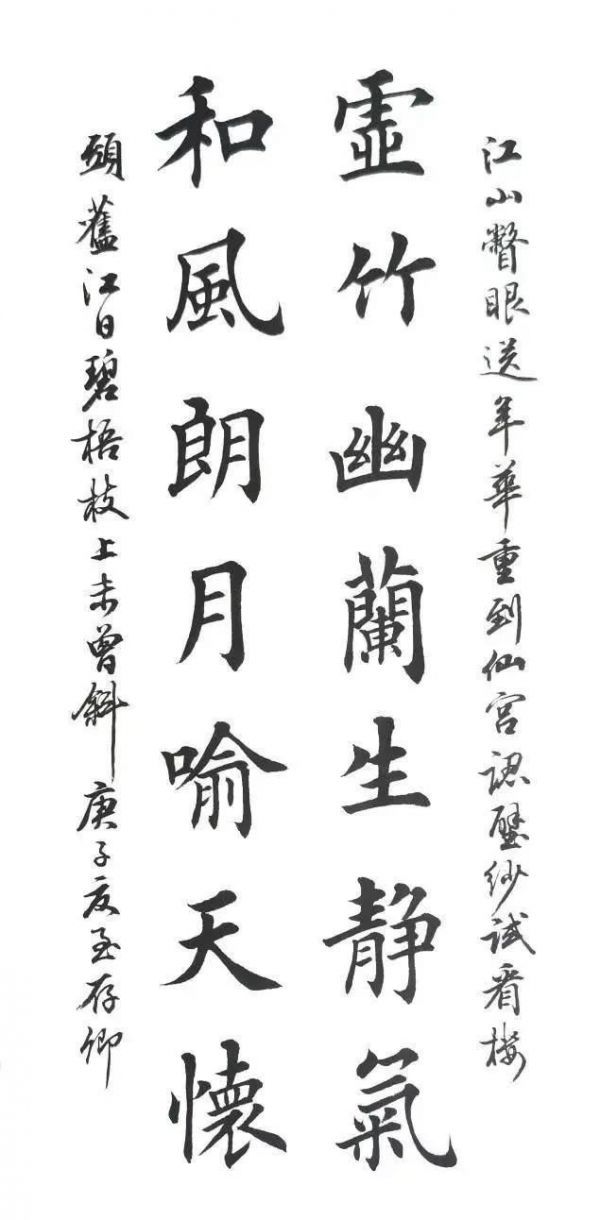 江山瞥眼送年華重到仙宮認壁紗試看樓
虛竹幽蘭生静氣
和風朗月喻天懷
頭舊江日碧梧枝上未曾斜 庚子夏至存卿